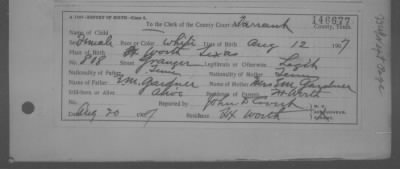 A 1197—REPORT OF BIRTH—Class 5. 146677
To the Clerk of the County Court of Tarrant County, Texas.
Name of Child
Female Race or Color White Date of Birth Aug 12 1907
Ft Worth Texas
No. 808 Street Granger Legitimate or Otherwise Legit
Nationality of Father Tenn Nationality of Mother Tenn
Name of Father E.M. Gardner Name of Mother Mrs E.M. Gardner
Still-born or Alive Alive Residence of Parents Ft Worth
No. Reported by John D. M.D.
Date Aug 20 1907 Residence Ft Worth